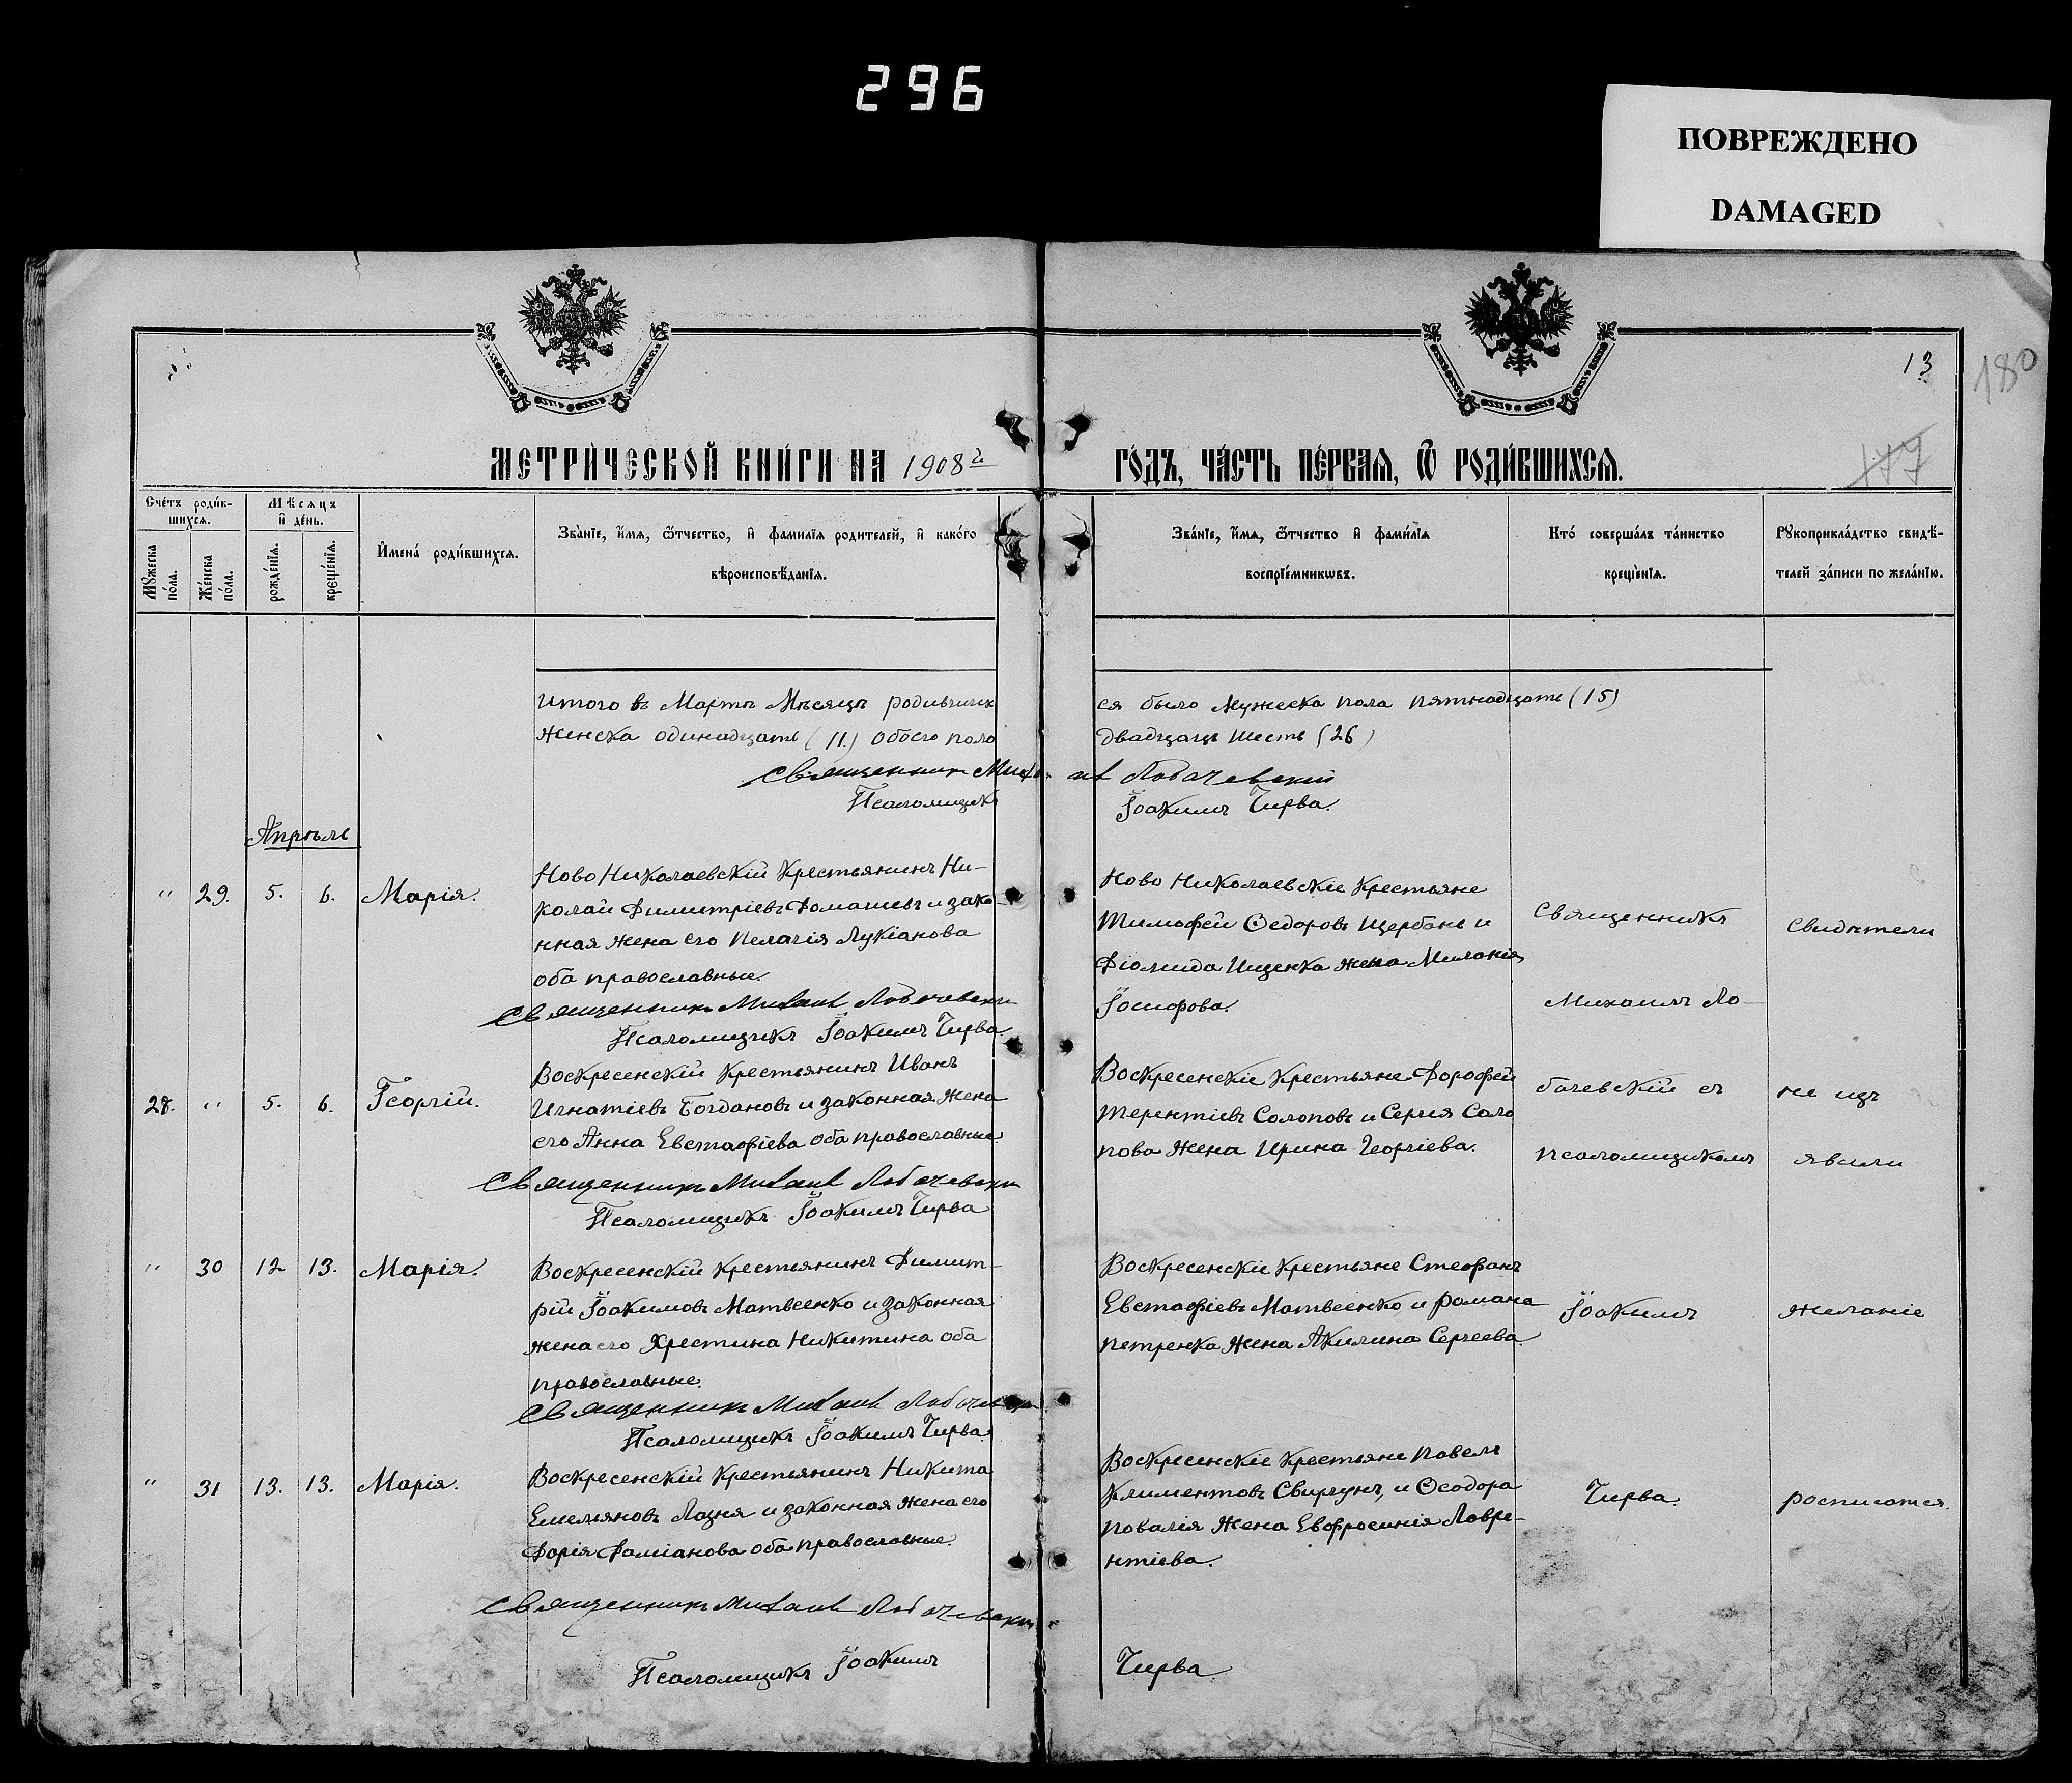 296
ПОВРЕЖДЕНО
DAMAGED
13
180
177
МЕТРИ́ЧЕСКОЙ КНИ́ГИ НА 1908й
ГО́ДЪ, ЧА́СТЬ ПЕ́РВАѦ, Ѿ РОДИ́ВШИХСѦ.
Сче́тъ роди́в-
шихсѧ.
Мѣсѧцъ
и҆ де́нь.
Мꙋжеска по́ла.
Же́нска по́ла.
рожде́нїѧ.
креще́нїѧ.
И҆мена́ роди́вшихсѧ.
Зва́нїе, и҆́мѧ, ѻ҆́тчество, и҆ фами́лїѧ родителей, и҆ како́гѡ
вѣроисповѣ́данїѧ.
Зва́нїе, и҆́мѧ, ѻ҆́тчество и҆ фами́лїѧ
воспрїе́мникѡвъ.
Кто́ соверша́лъ та́инство
креще́нїѧ.
Рꙋкоприкла́дство свидѣ́-
телей за́писи по жела́нїю.
Итого въ Мартѣ Мѣсяцѣ родивших
ся было Мужеска пола пятнадцать (15)
Женска одинадцать (11.) обоего пола
двадцать шесть (26)
Священникъ Михаилъ Лобачевскій
Псаломщикъ Іоакимъ Чирва.
Апрѣль
" 29. 5. 6. Марія.
Ново Николаевскій Крестьянинъ Ни-
колай Димитріевъ Домашевъ и зако
нная жена его Пелагія Лукіанова
оба православные.
Священникъ Михаилъ Лобачевски
Псаломщикъ Іоакимъ Чирва.
Ново Николаевскіе Крестьяне
Тимофей Ѳедоровъ Щербань и
Діомида Ищенка жена Меланія
Іосифова.
28. " 5. 6. Георгій.
Воскресенскій Крестьянинъ Иванъ
Игнатіевъ Богдановъ и законная жена
его Анна Евстафіева оба православные.
Священникъ Михаилъ Лобачевски
Псаломщикъ Іоакимъ Чирва
Воскресенскіе Крестьяне Дорофей
Терентіевъ Солоповъ и Сергія Соло
пова жена Ирина Георгіева.
" 30 12 13. Марія.
Воскресенскій Крестьянинъ Димит-
рій Іоакимовъ Матвеенко и законная
жена его Хрестина Никитина оба
православные.
Священникъ Михаилъ Лобачевски
Псаломщикъ Іоакимъ Чирва.
Воскресенскіе Крестьяне Стефанъ
Евстафіевъ Матвеенко и Романа
Петренка жена Акилина Сергеева.
" 31 13. 13. Марія.
Воскресенскій Крестьянинъ Никита
Емельяновъ Лазня и законная жена его
Дарія Даміанова оба православные.
Священникъ Михаилъ Лобачевски
Псаломщикъ Іоакимъ Чирва
Воскресенскіе Крестьяне Павелъ
Климентовъ Свиргунъ, и Ѳеодора
Повалія жена Евфросинія Лавре-
нтіева.
Священникъ
Михаилъ Ло-
бачевскій съ
псаломщикомъ
Іоакимъ
Чирва.
Свидѣтели
не изъ
явили
желаніе
росписатся.